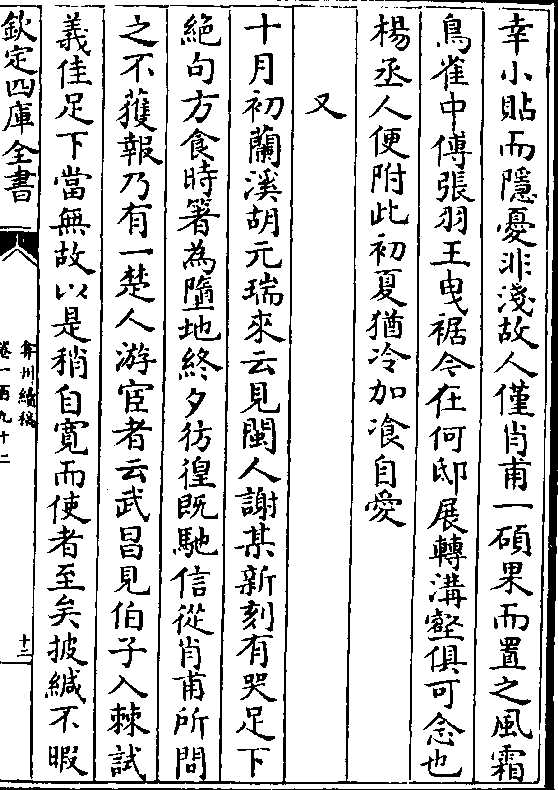 幸小貼而隱憂非淺故人僅肖甫一碩果而置之風霜
鳥雀中傅張羽王曳裾今在何邸展轉溝壑俱可念也
楊丞人便附此初夏猶冷加飡自愛
又
十月初蘭溪胡元瑞來云見閩人謝某新刻有哭足下
絶句方食時箸為墮地終夕彷徨既馳信從肖甫所問
之不獲報乃有一楚人游宦者云武昌見伯子入棘試
義佳足下當無故以是稍自寛而使者至矣披緘不暇
欽定四庫全書
弇州續稿
卷一百九十二
十二